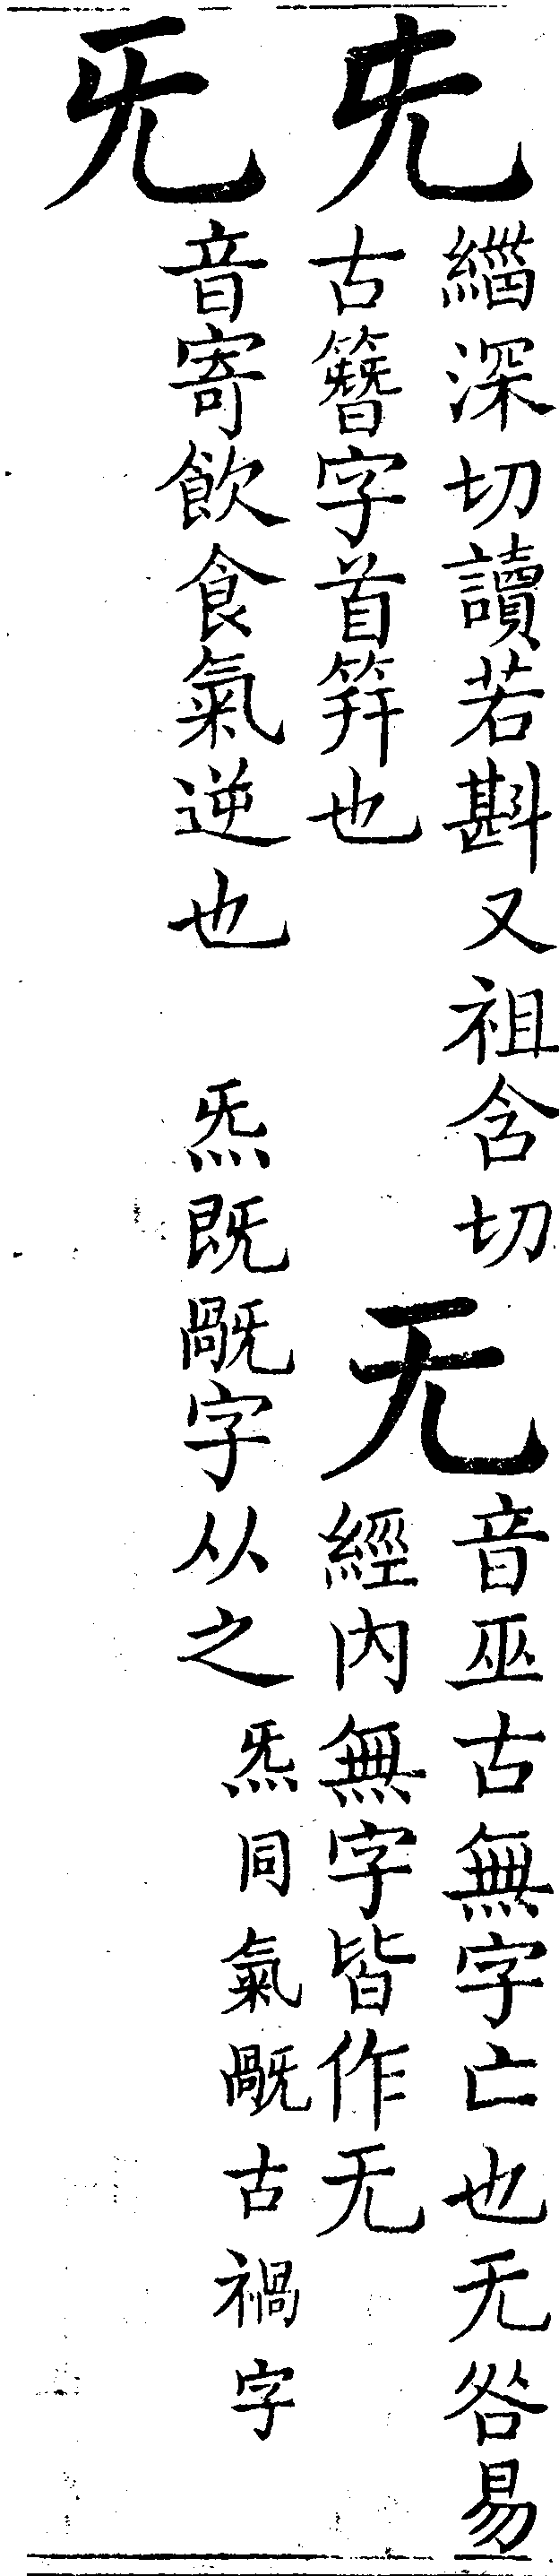 兂
緇深切讀若斟又祖含切
古簪字首筓也
无
音巫古無字亡也无咎易
經內無字皆作无
旡
音寄飲食氣逆也
炁既𣄴字从之
炁同氣𣄴古禍字